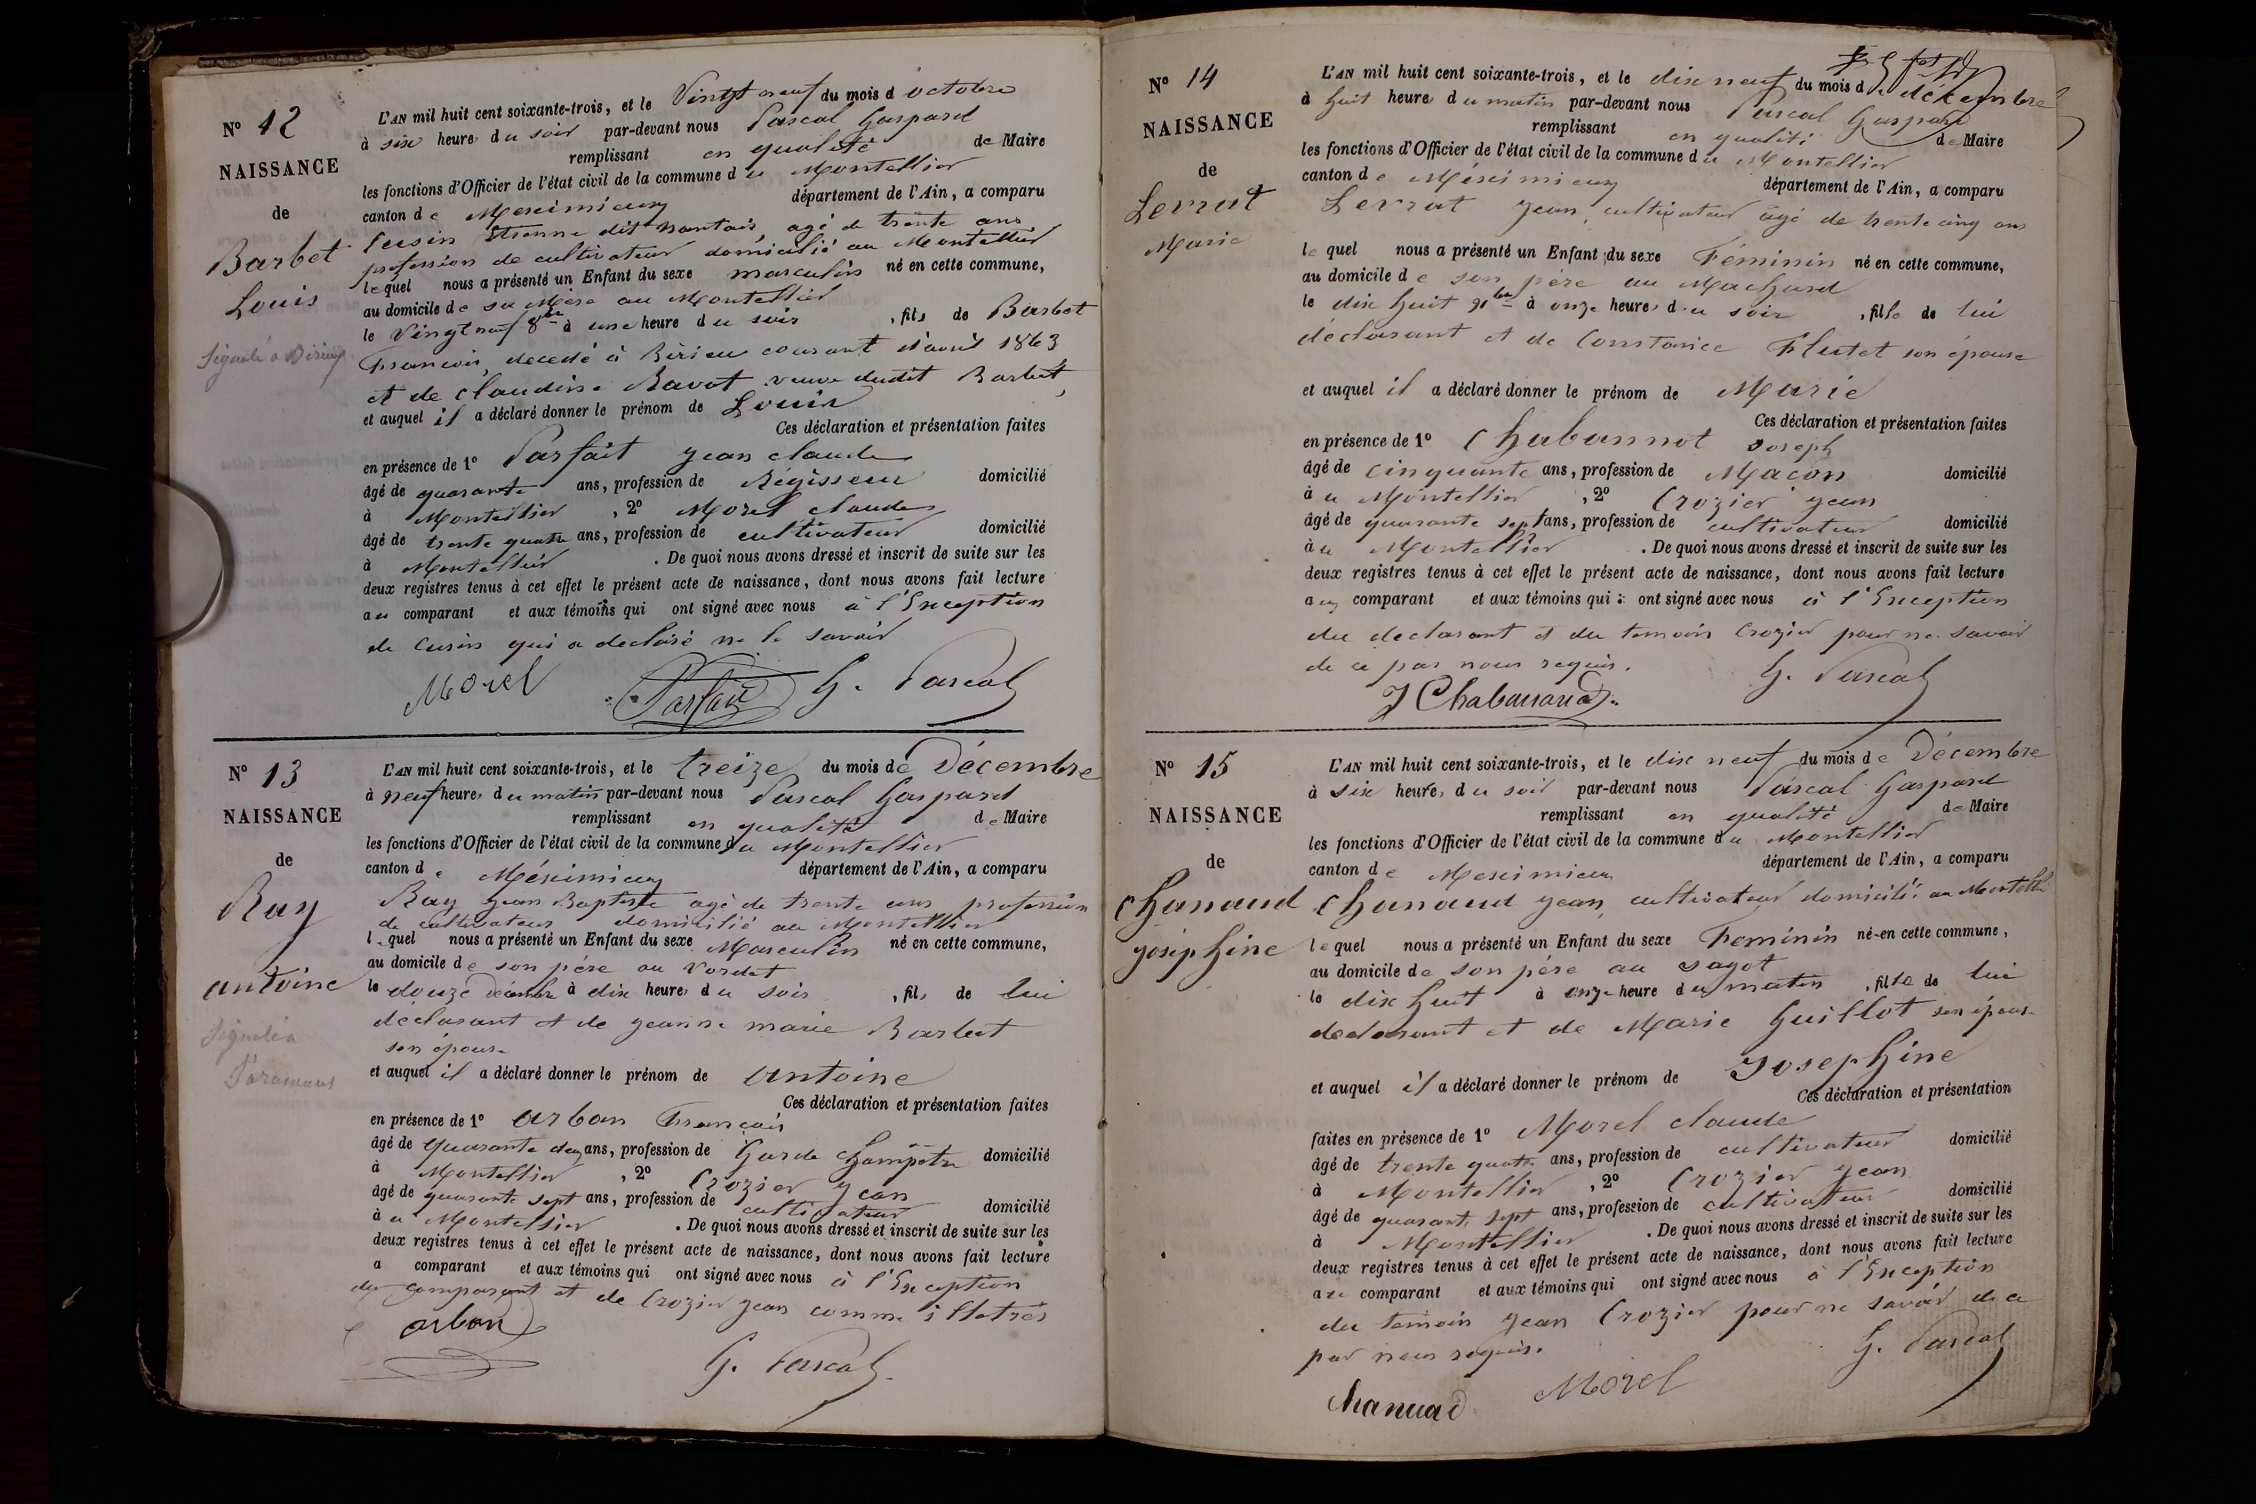 N° 12
NAISSANCE
de
Barbet
Louis
Signalé à Birieux
L'AN mil huit cent soixante-trois, et le Vingt neuf du mois d'octobre
à six heures du soir par-devant nous Pascal Gaspard
remplissant en qualité de Maire
les fonctions d'Officier de l'état civil de la commune du Montellier
canton de Meximieux département de l'Ain, a comparu
Cusin Etienne dit nantais, agé de trente ans
profession de cultivateur domicilié au Montellier
lequel nous a présenté un Enfant du sexe masculin né en cette commune,
au domicile de sa Mère au Montellier
le Vingt neuf 8bre à une heure du soir, fils de Barbet
Francois, decedé à Birieu courant d'avril 1863
et de claudine Ravat veuve dudit Barbet,
et auquel il a déclaré donner le prénom de Louis
Ces déclaration et présentation faites
en présence de 1° Parfait jean claude
âgé de quarante ans, profession de Régisseur domicilié
à Montellier, 2° Morel claude
âgé de trente quatre ans, profession de cultivateur domicilié
à Montellier. De quoi nous avons dressé et inscrit de suite sur les
deux registres tenus à cet effet le présent acte de naissance, dont nous avons fait lecture
au comparant et aux témoins qui ont signé avec nous à l'Exception
de cusin qui a declaré ne le savoir
Morel Parfait G. Pascal
N° 13
NAISSANCE
de
Ray
antoine
Signalé à
L'AN mil huit cent soixante-trois, et le treize du mois de Décembre
à neuf heures du matin par-devant nous Pascal Gaspard
remplissant en qualité de Maire
les fonctions d'Officier de l'état civil de la commune du Montellier
canton de Méximieux département de l'Ain, a comparu
Ray jean Baptiste agé de trente ans profession
de cultivateur domicilié au Montellier
lequel nous a présenté un Enfant du sexe Masculin né en cette commune,
au domicile de son père au Vordat
le douze Décembre à dix heures du soir, fils de lui
declarant et de jeanne marie Barbet
son épouse
et auquel il a déclaré donner le prénom de antoine
Ces déclaration et présentation faites
en présence de 1° arban François
âgé de quarante deux ans, profession de Garde champêtre domicilié
à Montellier, 2° Crozier jean
âgé de quarante sept ans, profession de cultivateur domicilié
à u Montellier. De quoi nous avons dressé et inscrit de suite sur les
deux registres tenus à cet effet le présent acte de naissance, dont nous avons fait lecture
a comparant et aux témoins qui ont signé avec nous à l'Exception
du comparant et de Crozier jean comme illetrés
arban
G. Pascal
N° 14
NAISSANCE
de
Levrat
Marie
L'AN mil huit cent soixante-trois, et le dix neuf du mois de décembre
à huit heures du matin par-devant nous Pascal Gaspard
remplissant en qualité de Maire
les fonctions d'Officier de l'état civil de la commune du Montellier
canton de Méximieux département de l'Ain, a comparu
Levrat jean, cultivateur âgé de trente cinq ans
lequel nous a présenté un Enfant du sexe Féminin né en cette commune,
au domicile de son père au Machard
le dix huit Xbre à onze heures du soir, fille de lui
déclarant et de Constance Flutet son épouse
et auquel il a déclaré donner le prénom de Marie
Ces déclaration et présentation faites
en présence de 1° Chabannot joseph
âgé de cinquante ans, profession de Macon domicilié
à u Montellier, 2° Crozier jean
âgé de quarante sept ans, profession de cultivateur domicilié
à u Montellier. De quoi nous avons dressé et inscrit de suite sur les
deux registres tenus à cet effet le présent acte de naissance, dont nous avons fait lecture
aux comparant et aux témoins qui ont signé avec nous à l'Exception
du declarant et du temoin Crozier pour ne savoir
de ce par nous requis.
J Chabanand G. Pascal
N° 15
NAISSANCE
de
Chanaud
joséphine
L'AN mil huit cent soixante-trois, et le dix neuf du mois de Décembre
à six heures du soir par-devant nous Pascal Gaspard
remplissant en qualité de Maire
les fonctions d'Officier de l'état civil de la commune du Montellier
canton de Meximieux département de l'Ain, a comparu
Chanaud jean, cultivateur domicilié au Montellier
lequel nous a présenté un Enfant du sexe Feminin né en cette commune,
au domicile de son père au sagot
le dix huit à onze heure du matin, fille de lui
declarant et de Marie Guillot son épouse
et auquel il a déclaré donner le prénom de Josephine
Ces déclaration et présentation
faites en présence de 1° Morel claude
âgé de trente quatre ans, profession de cultivateur domicilié
à Montellier, 2° Crozier jean
âgé de quarante sept ans, profession de cultivateur domicilié
à Montellier. De quoi nous avons dressé et inscrit de suite sur les
deux registres tenus à cet effet le présent acte de naissance, dont nous avons fait lecture
au comparant et aux témoins qui ont signé avec nous à l'Exception
du temoin jean Crozier pour ne savoir de ce
par nous requis.
G. Pascal
Chanuad Morel